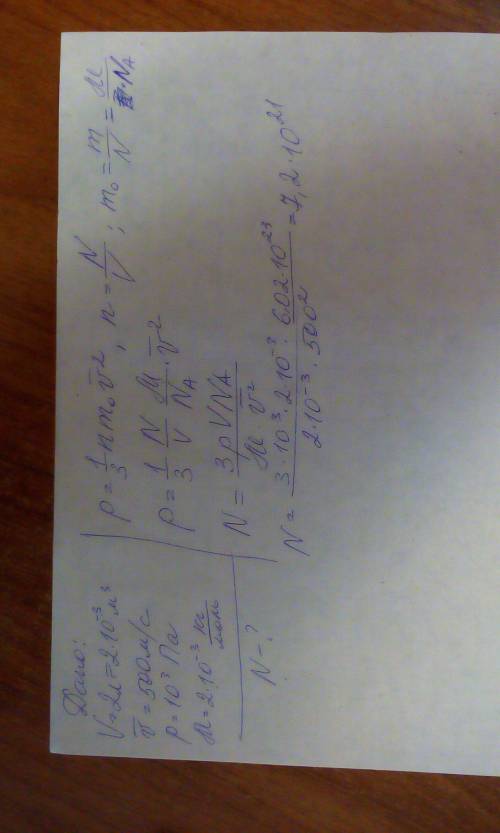 Дано:
V=2л=2·10⁻³м³
v̅=500м/с
p=10³ Па
M=2·10⁻³ кг/моль
N-?
p=1/3 n m₀ v̅², n=N/V; m₀=m/N=M/N_A
p=1/3 N/V M/N_A · v̅²
N=3pVN_A/M·v̅²
N=3·10³·2·10⁻³·6,02·10²³/2·10⁻³·500²=7,2·10²¹